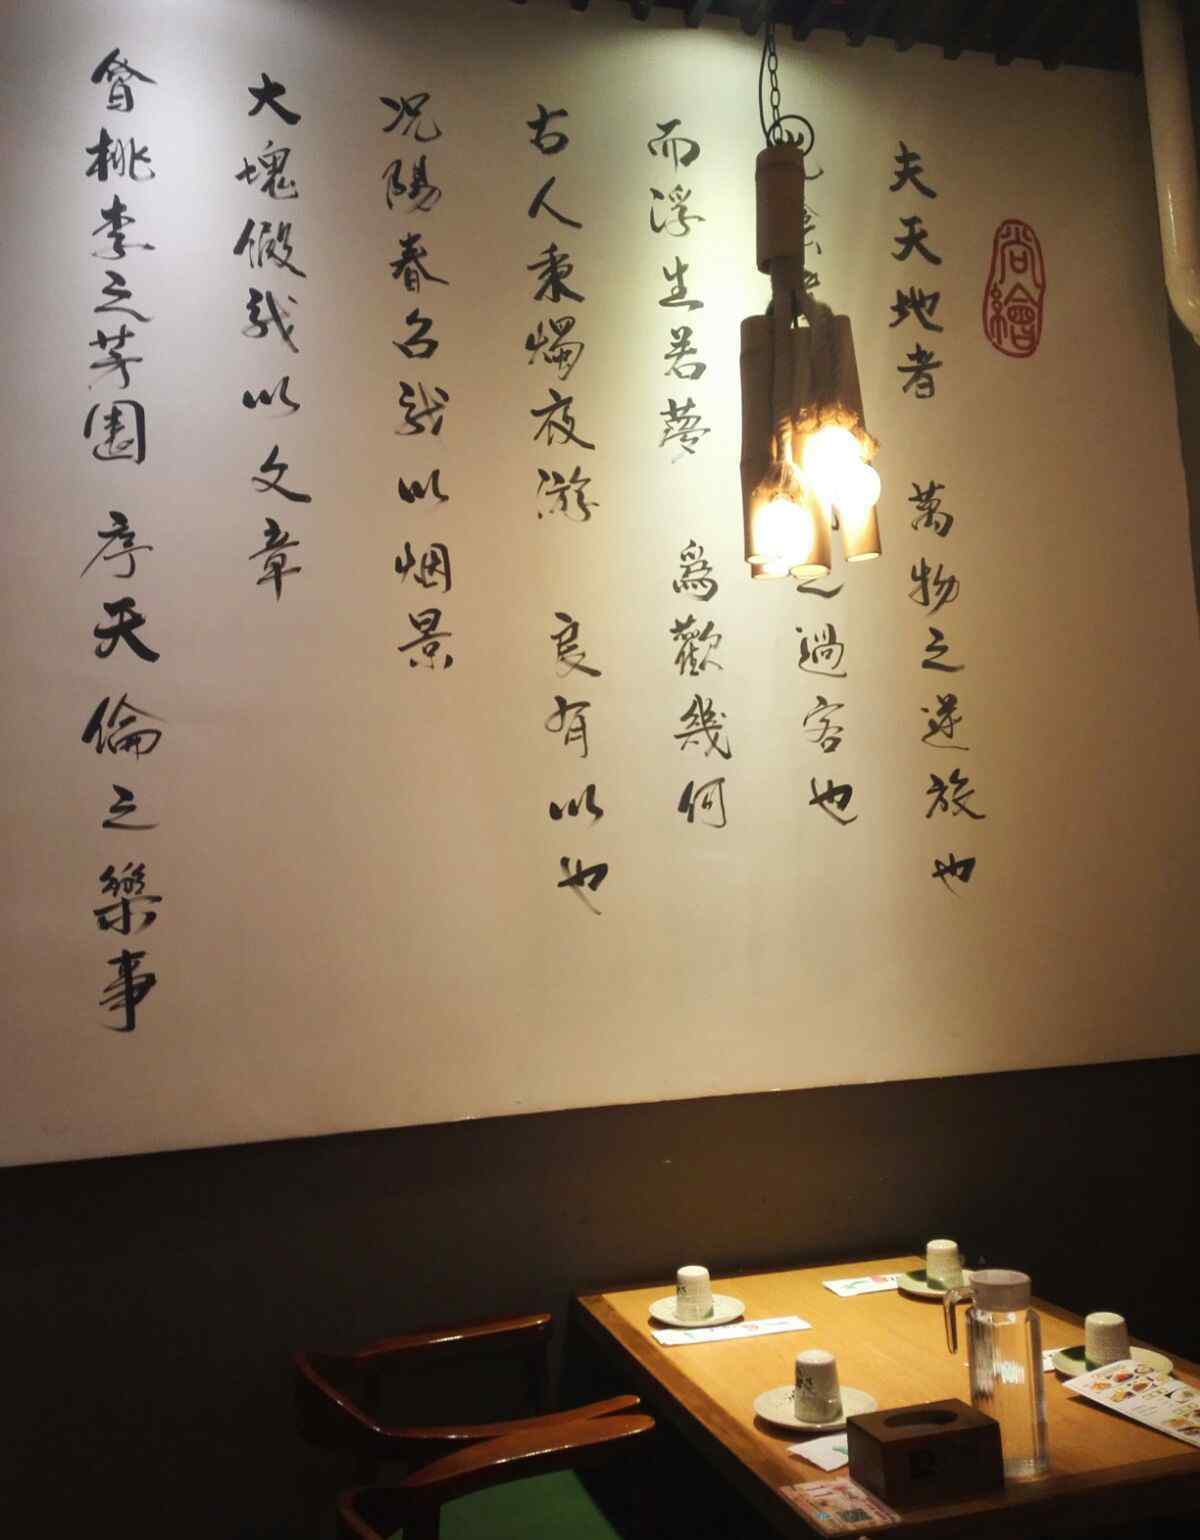 尚繪
夫天地者 萬物之逆旅也
之過客也
而浮生若夢 爲歡幾何
古人秉燭夜游 良有以也
况陽春召我以烟景
大塊假我以文章
會桃李之芳園 序天倫之樂事